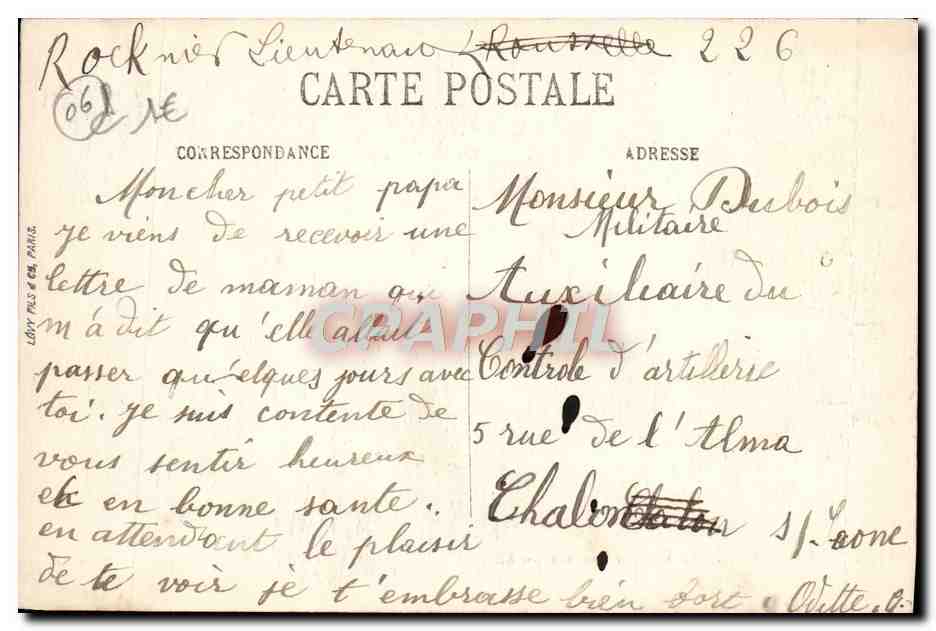 Rocknier Lieutenau Rousselle 226
CARTE POSTALE
06 1€
CORRESPONDANCE
Mon cher petit papa
je viens de recevoir une
lettre de maman qui
m'a dit qu'elle allait
passer quelques jours avec
toi. je suis contente de
vous sentir heureux
et en bonne sante.
en attendant le plaisir
de te voir je t'embrasse bien fort. Odette. D.
ADRESSE
Monsieur Dubois
Militaire
Auxiliaire du
Controle d'artillerie
5 rue de l'Alma
Chalon s/-Saone
LÉVY FILS & CIE, PARIS.
CPAPHIL